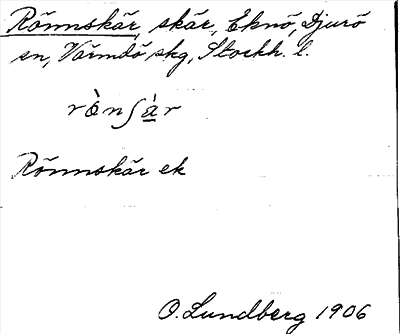 Rönnskär, skär, Eknö, Djurö
sn, Värmdö skg, Stockh. l.
rö̀nʃá̱r
Rönnskär ek
O. Lundberg 1906